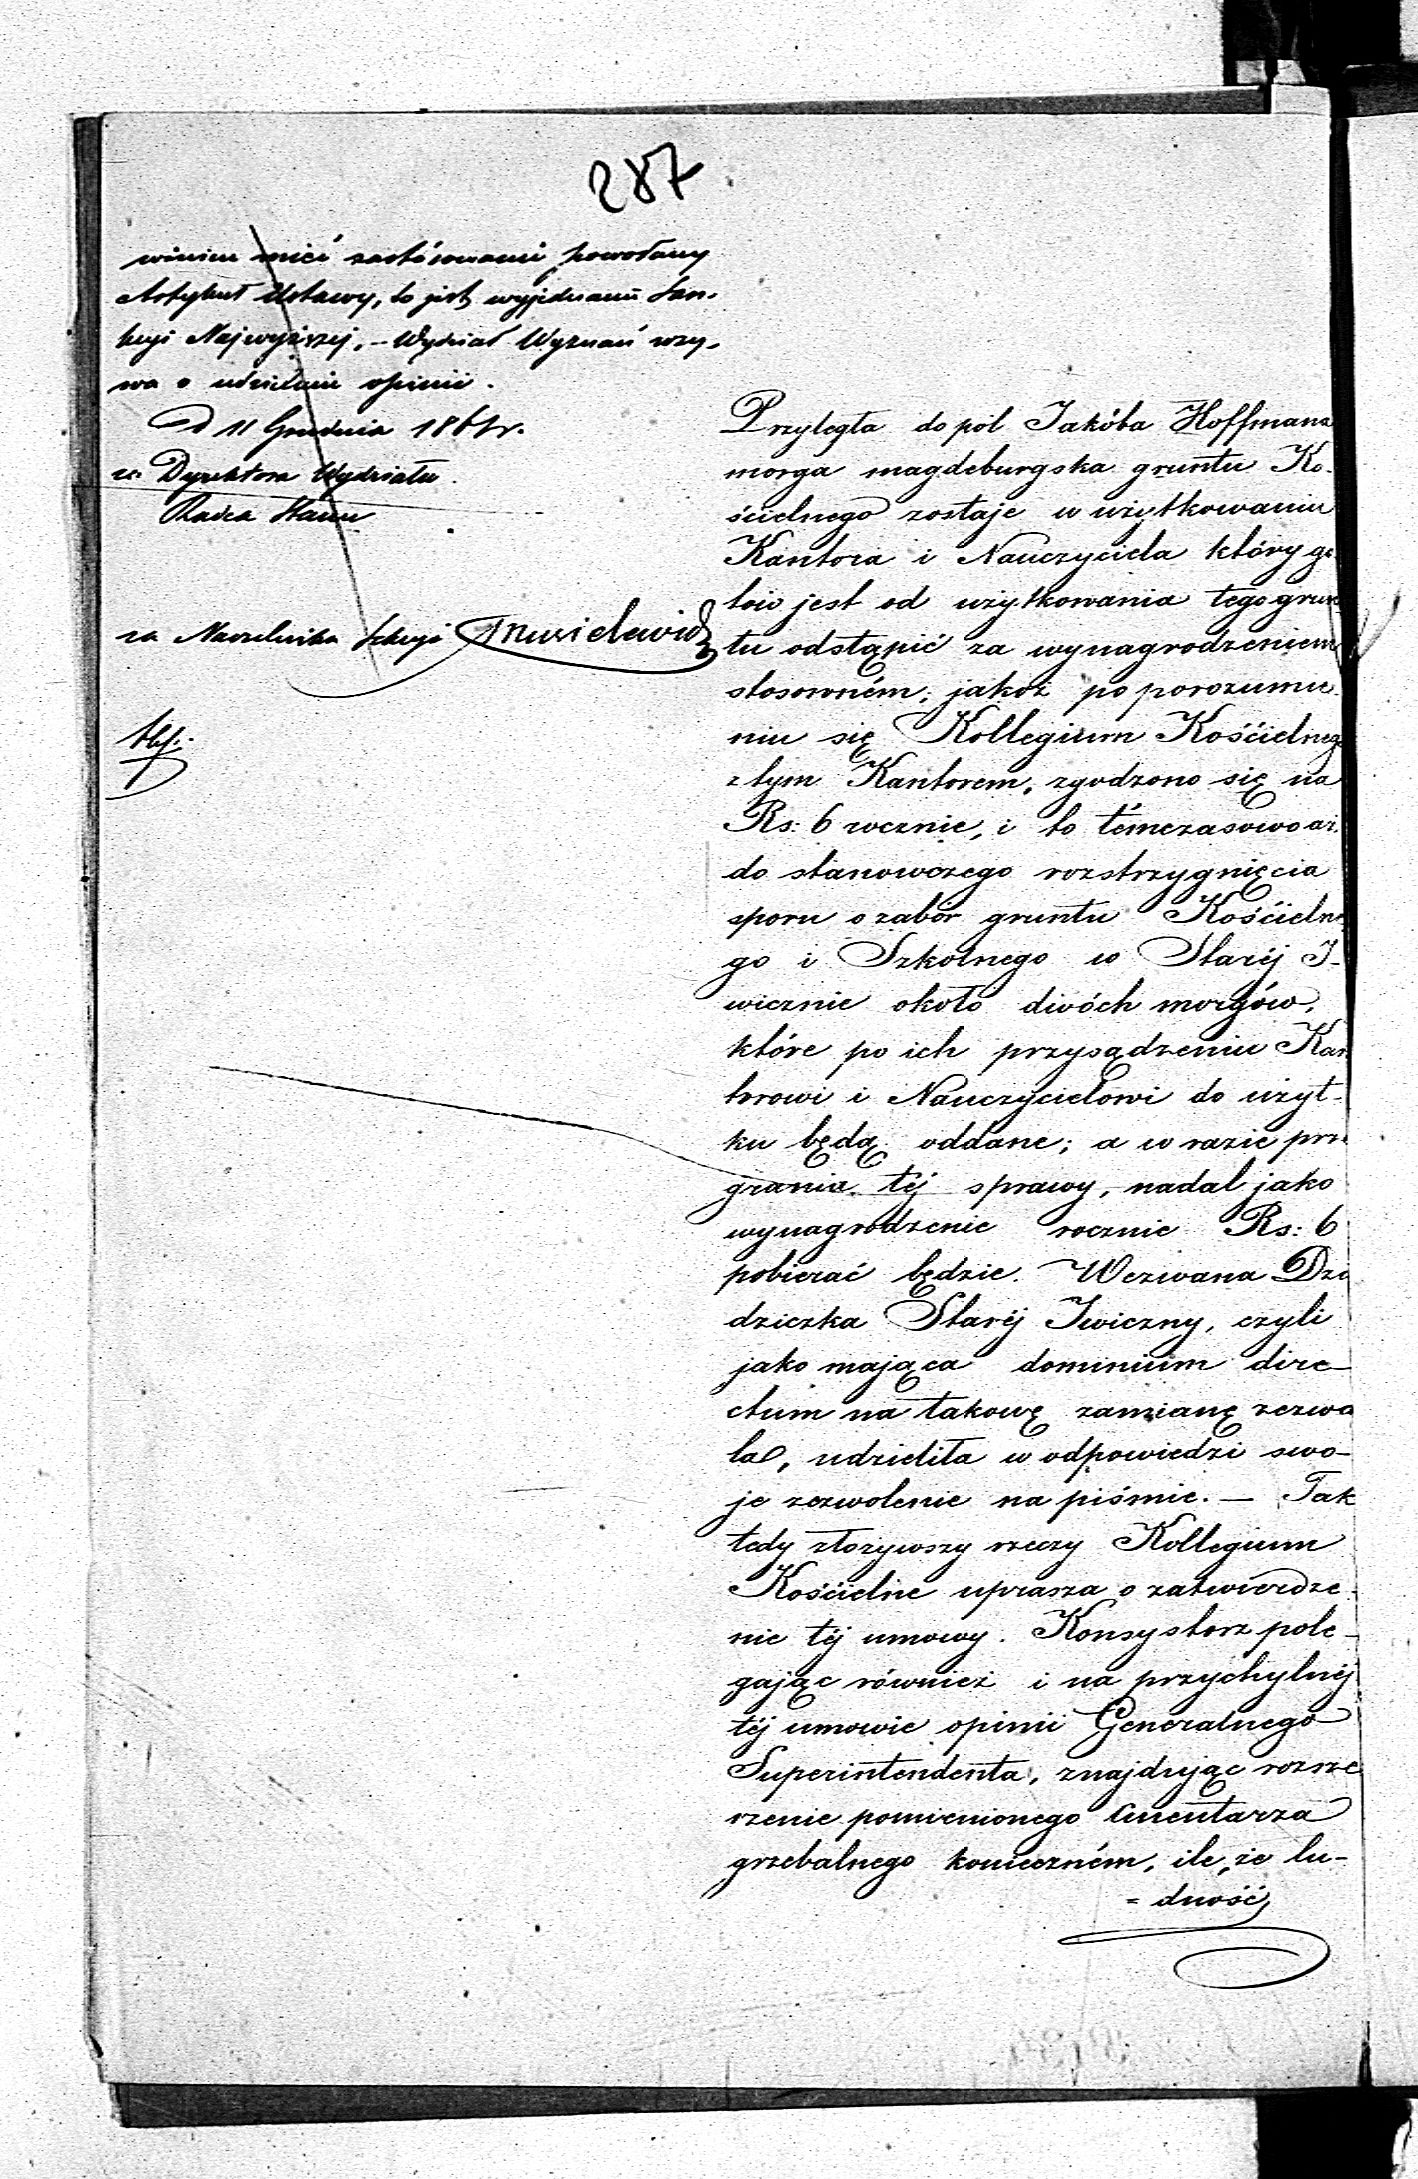 287
winien mieć zastósowanie powołany
Artykuł Ustawy, to jest wyjednanie San-
kcyi Najwyższej, – Wydział Wyznań wzy-
wa o udzielenie opinii.
D 11 Grudnia 1861 r.
za Dyrektora Wydziału
Radca Stanu
za Naczelnika Sekcyi Musielewicz
Przyległa do pól Jakóba Hoffmana
morga magdeburgska gruntu Ko-
ścielnego zostaje w użytkowaniu
Kantora i Nauczyciela który go
tów jest od użytkowania tego grun
tu odstąpić za wynagrodzeniem
stosowném; jakoż po porozumie
niu się Kollegium Kościelnego
z tym Kantorem, zgodzono się na
Rs: 6 rocznie, i to témczasowo aż
do stanowczego rozstrzygnięcia
sporu o zabór gruntu Kościelne
go i Szkolnego w Staréj I-
wicznie około dwóch morgów,
które po ich przysądzeniu Kan
torowi i Nauczycielowi do użyt-
ku będą oddane; a w razie prze
grania téj sprawy, nadal jako
wynagrodzenie rocznie Rs: 6
pobierać będzie. Wezwana Dzie
dziczka Staréj Iwiczny, czyli
jako mająca dominium dire-
ctum na takowę zamianę zezwa
la, udzieliła w odpowiedzi swo-
je zezwolenie na piśmie. — Tak
tedy złożywszy rzeczy Kollegium
Kościelne uprasza o zatwierdze-
nie téj umowy. Konsystorz pole-
gając również i na przychylnéj
téj umowie opinii Generalnego
Superintendenta, znajdując rozsze
rzenie pomienionego Cmentarza
grzebalnego konieczném, ile, że lu-
= dność